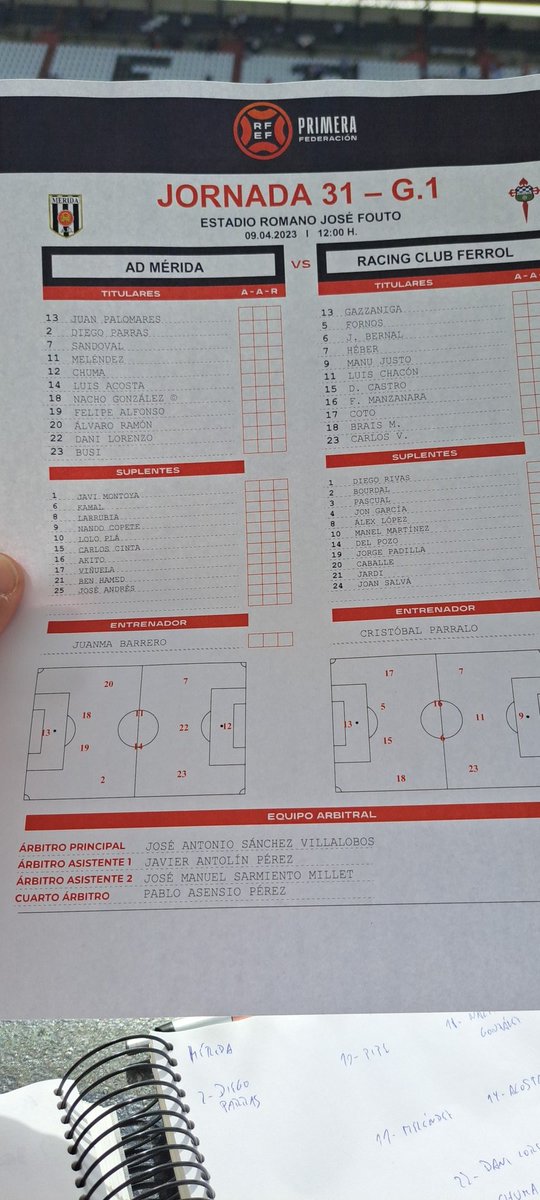 RF
EF
PRIMERA
FEDERACIÓN
MERIDA
JORNADA 31 – G.1
ESTADIO ROMANO JOSÉ FOUTO
09.04.2023 I 12:00 H.
AD MÉRIDA VS RACING CLUB FERROL
TITULARES A - A - R
13 JUAN PALOMARES
2 DIEGO PARRAS
7 SANDOVAL
11 MELÉNDEZ
12 CHUMA
14 LUIS ACOSTA
18 NACHO GONZÁLEZ ©
19 FELIPE ALFONSO
20 ÁLVARO RAMÓN
22 DANI LORENZO
23 BUSI
SUPLENTES
1 JAVI MONTOYA
6 KAMAL
8 LARRUBIA
9 NANDO COPETE
10 LOLO PLÁ
15 CARLOS CINTA
16 AKITO
17 VIÑUELA
21 BEN HAMED
25 JOSÉ ANDRÉS
ENTRENADOR
JUANMA BARRERO
TITULARES A - A
13 GAZZANIGA
5 FORNOS
6 J. BERNAL
7 HÉBER
9 MANU JUSTO
11 LUIS CHACÓN
15 D. CASTRO
16 F. MANZANARA
17 COTO
18 BRAIS M.
23 CARLOS V.
SUPLENTES
1 DIEGO RIVAS
2 BOURDAL
3 PASCUAL
4 JON GARCÍA
8 ÁLEX LÓPEZ
10 MANEL MARTÍNEZ
14 DEL POZO
19 JORGE PADILLA
20 CABALLE
21 JARDI
24 JOAN SALVÁ
ENTRENADOR
CRISTÓBAL PARRALO
20 7
18 11
13 22 12
19 14
2 23
17 7
5 16
13 11 9
15 6
18 23
EQUIPO ARBITRAL
ÁRBITRO PRINCIPAL JOSÉ ANTONIO SÁNCHEZ VILLALOBOS
ÁRBITRO ASISTENTE 1 JAVIER ANTOLÍN PÉREZ
ÁRBITRO ASISTENTE 2 JOSÉ MANUEL SARMIENTO MILLET
CUARTO ÁRBITRO PABLO ASENSIO PÉREZ
MÉRIDA
2- DIEGO
PARRAS
11- MELÉNDEZ
GONZÁLEZ
14- ACOSTA
22- DANI
CHUMA